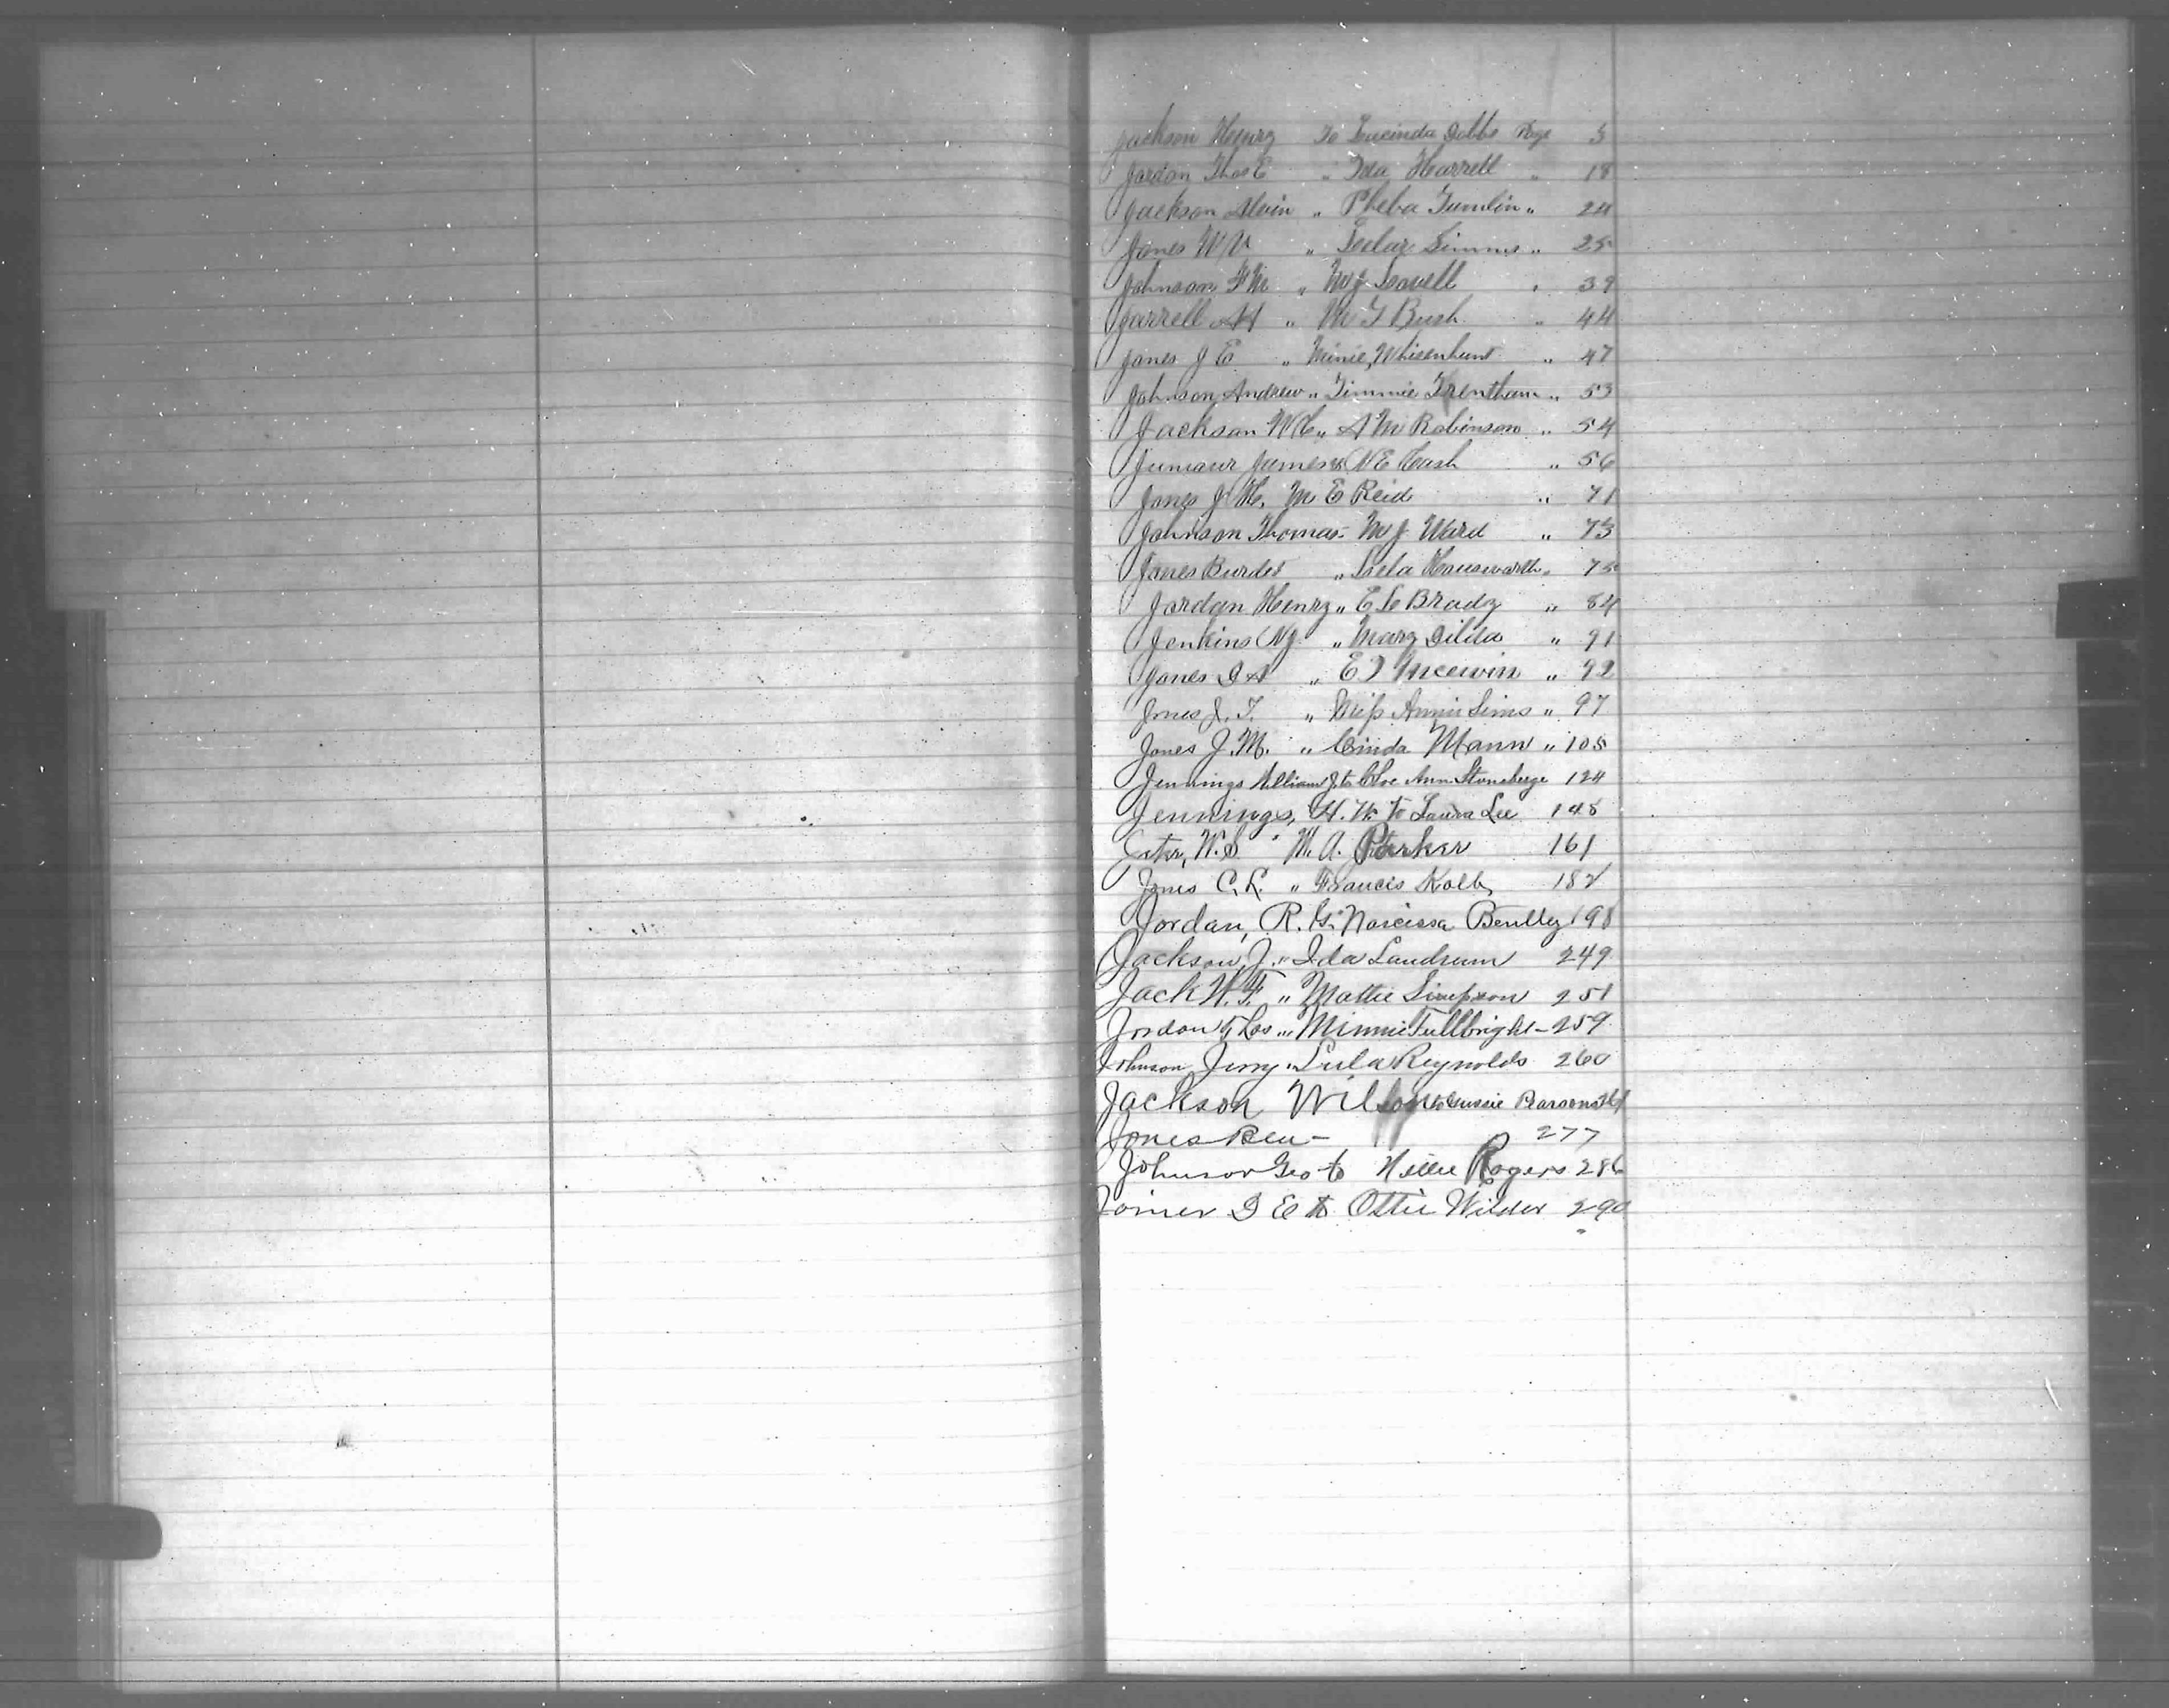 Jackson Henry To Lucinda Dobbs Page 5
Jordan Thos E " Ida Harrell " 18
Jackson Alvin " Pheba Tumlin " 24
Jones W V " Simms " 25
Johnson F M " M J Leavell " 39
Jarrell A A " M T Bush " 44
Jones J E " Minie Whisenhunt " 47
Johnson Andrew " Timmie Trentham " 53
Jackson W C " A M Robinson " 54
James N E Cash " 56
Jones J H. M E Reid " 71
Johnson Thomas - M J Ward " 73
Jones Burdet " Hausworth " 75
Jordan Henry " E Le Brady " 84
Jenkins N J " Mary Dilda " 91
Jones D A " E J McEwin " 92
Jones J. T. " Miss Annie Sims " 97
Jones J. M. " Cinda Mann " 105
Jennings William J to Chloe Ann Stoneberge 124
Jennings, H. W. to Laura Lee 148
Jeter, W. S. " M. A. Parker 161
Jones C. L. " Francis Kolb 182
Jordan, R. G. " Narcissa Bentley 198
Jackson, J. " Ida Landrum 249
Jack W. F. " Mattie Simpson 251
Jordon Thos " Minnie Fullbright - 259
Johnson Jerry " Lula Reynolds 260
Jackson Wilson to Gussie Parsons
Jones Ben - 277
Johnson Geo to Nellie Rogers 286
Joiner D E to Ottie Wilder 290
"